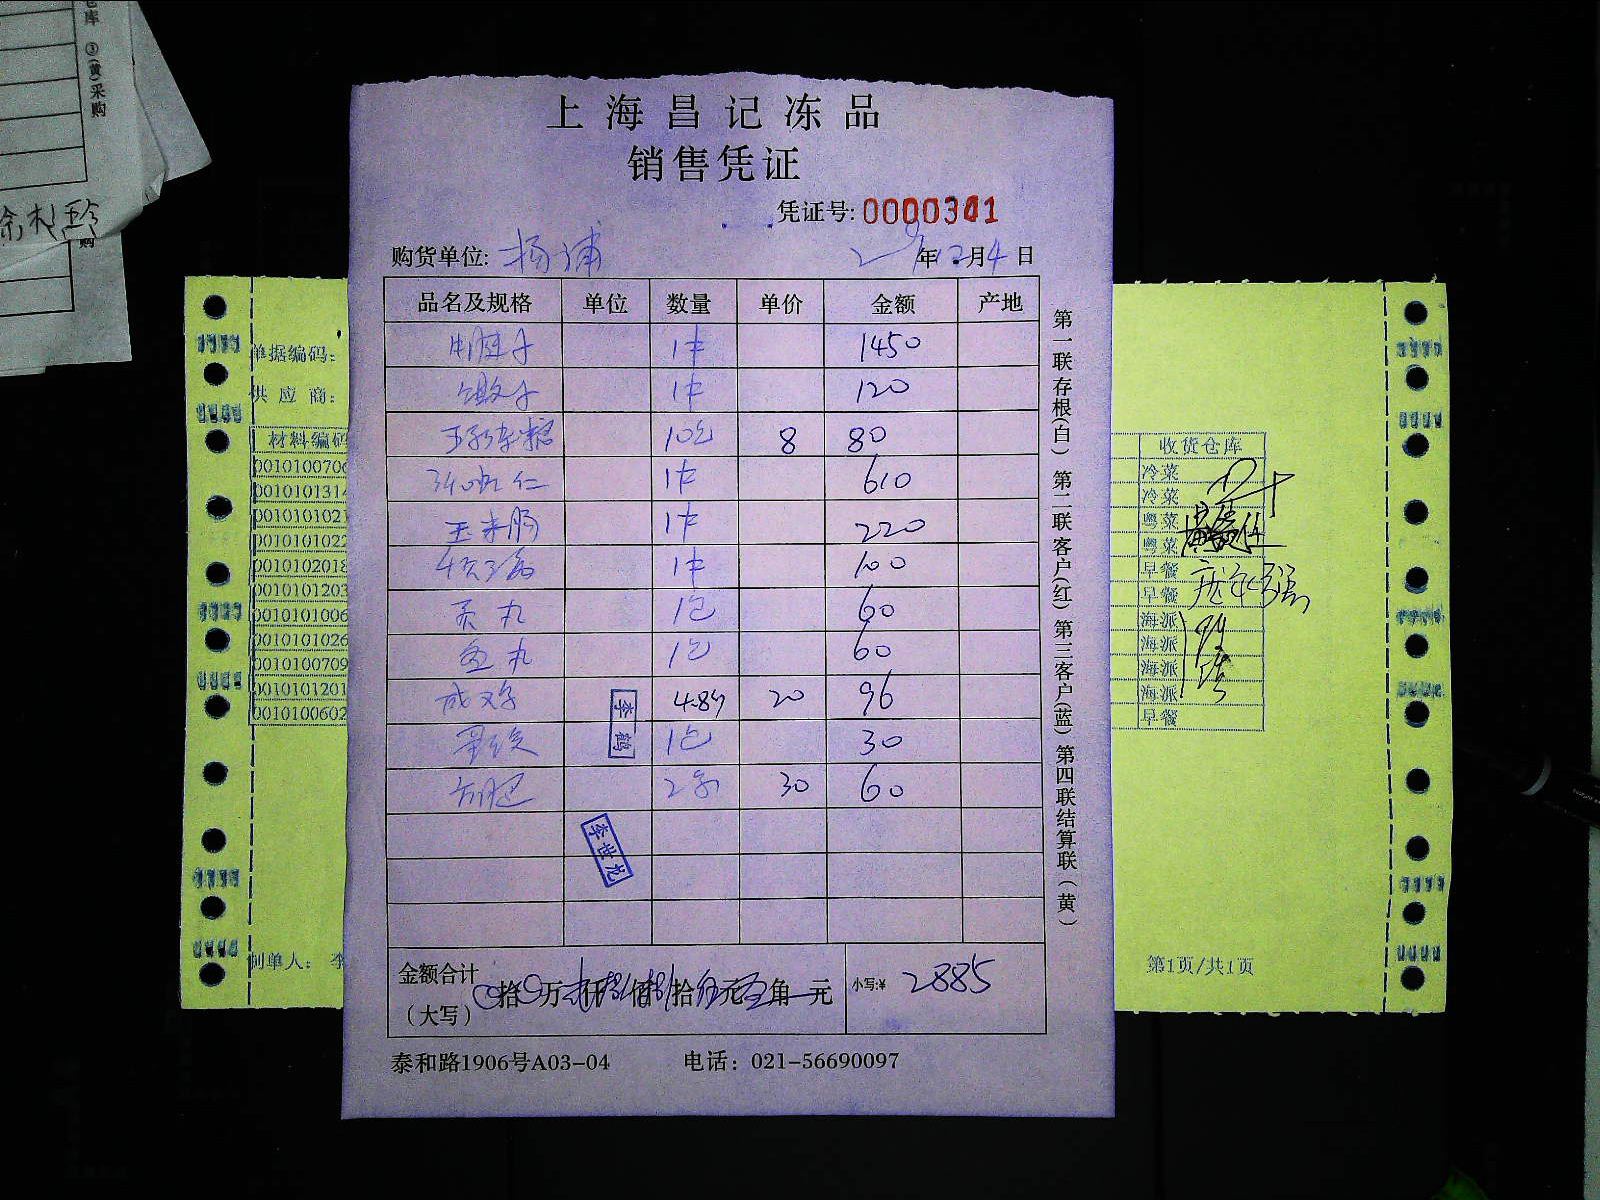 仓库 ③(黄)采购
购
上海昌记冻品
销售凭证
凭证号: 0000301
购货单位: 杨浦 年12月4日
品名及规格 单位 数量 单价 金额 产地
牛腱子 1件 1450
1件 120
10包 8 80
虾仁 1件 610
玉米肠 1件 220
1件 100
贡丸 1包 60
鱼丸 1包 60
4.8斤 20 96
李鹤
1包 30
30 60
李世龙
金额合计
(大写) 拾 万 仟 佰 拾 元 角 元 小写:¥ 2885
泰和路1906号A03-04 电话: 021-56690097
第一联存根(白) 第二联客户(红) 第三客户(蓝) 第四联结算联(黄)
单据编码:
供应商:
材料编码
001010070
001010131
001010102
001010102
001010201
001010120
001010100
001010102
001010070
001010120
001010060
制单人: 李
收货仓库
冷菜
冷菜
粤菜
粤菜
早餐
早餐
海派
海派
海派
海派
早餐
第1页/共1页